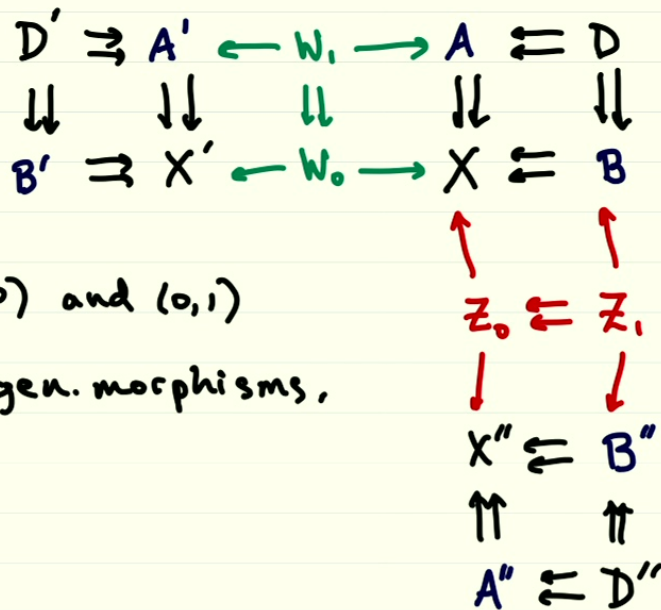 D′ ⇉ A′ ← W₁ → A ⇇ D
⇊ ⇊ ⇊ ⇊ ⇊
B′ ⇉ X′ ← W₀ → X ⇇ B
↑ ↑
) and (0,1)
Z₀ ⇇ Z₁
gen. morphisms,
↓ ↓
X″ ⇇ B″
⇈ ⇈
A″ ⇇ D″